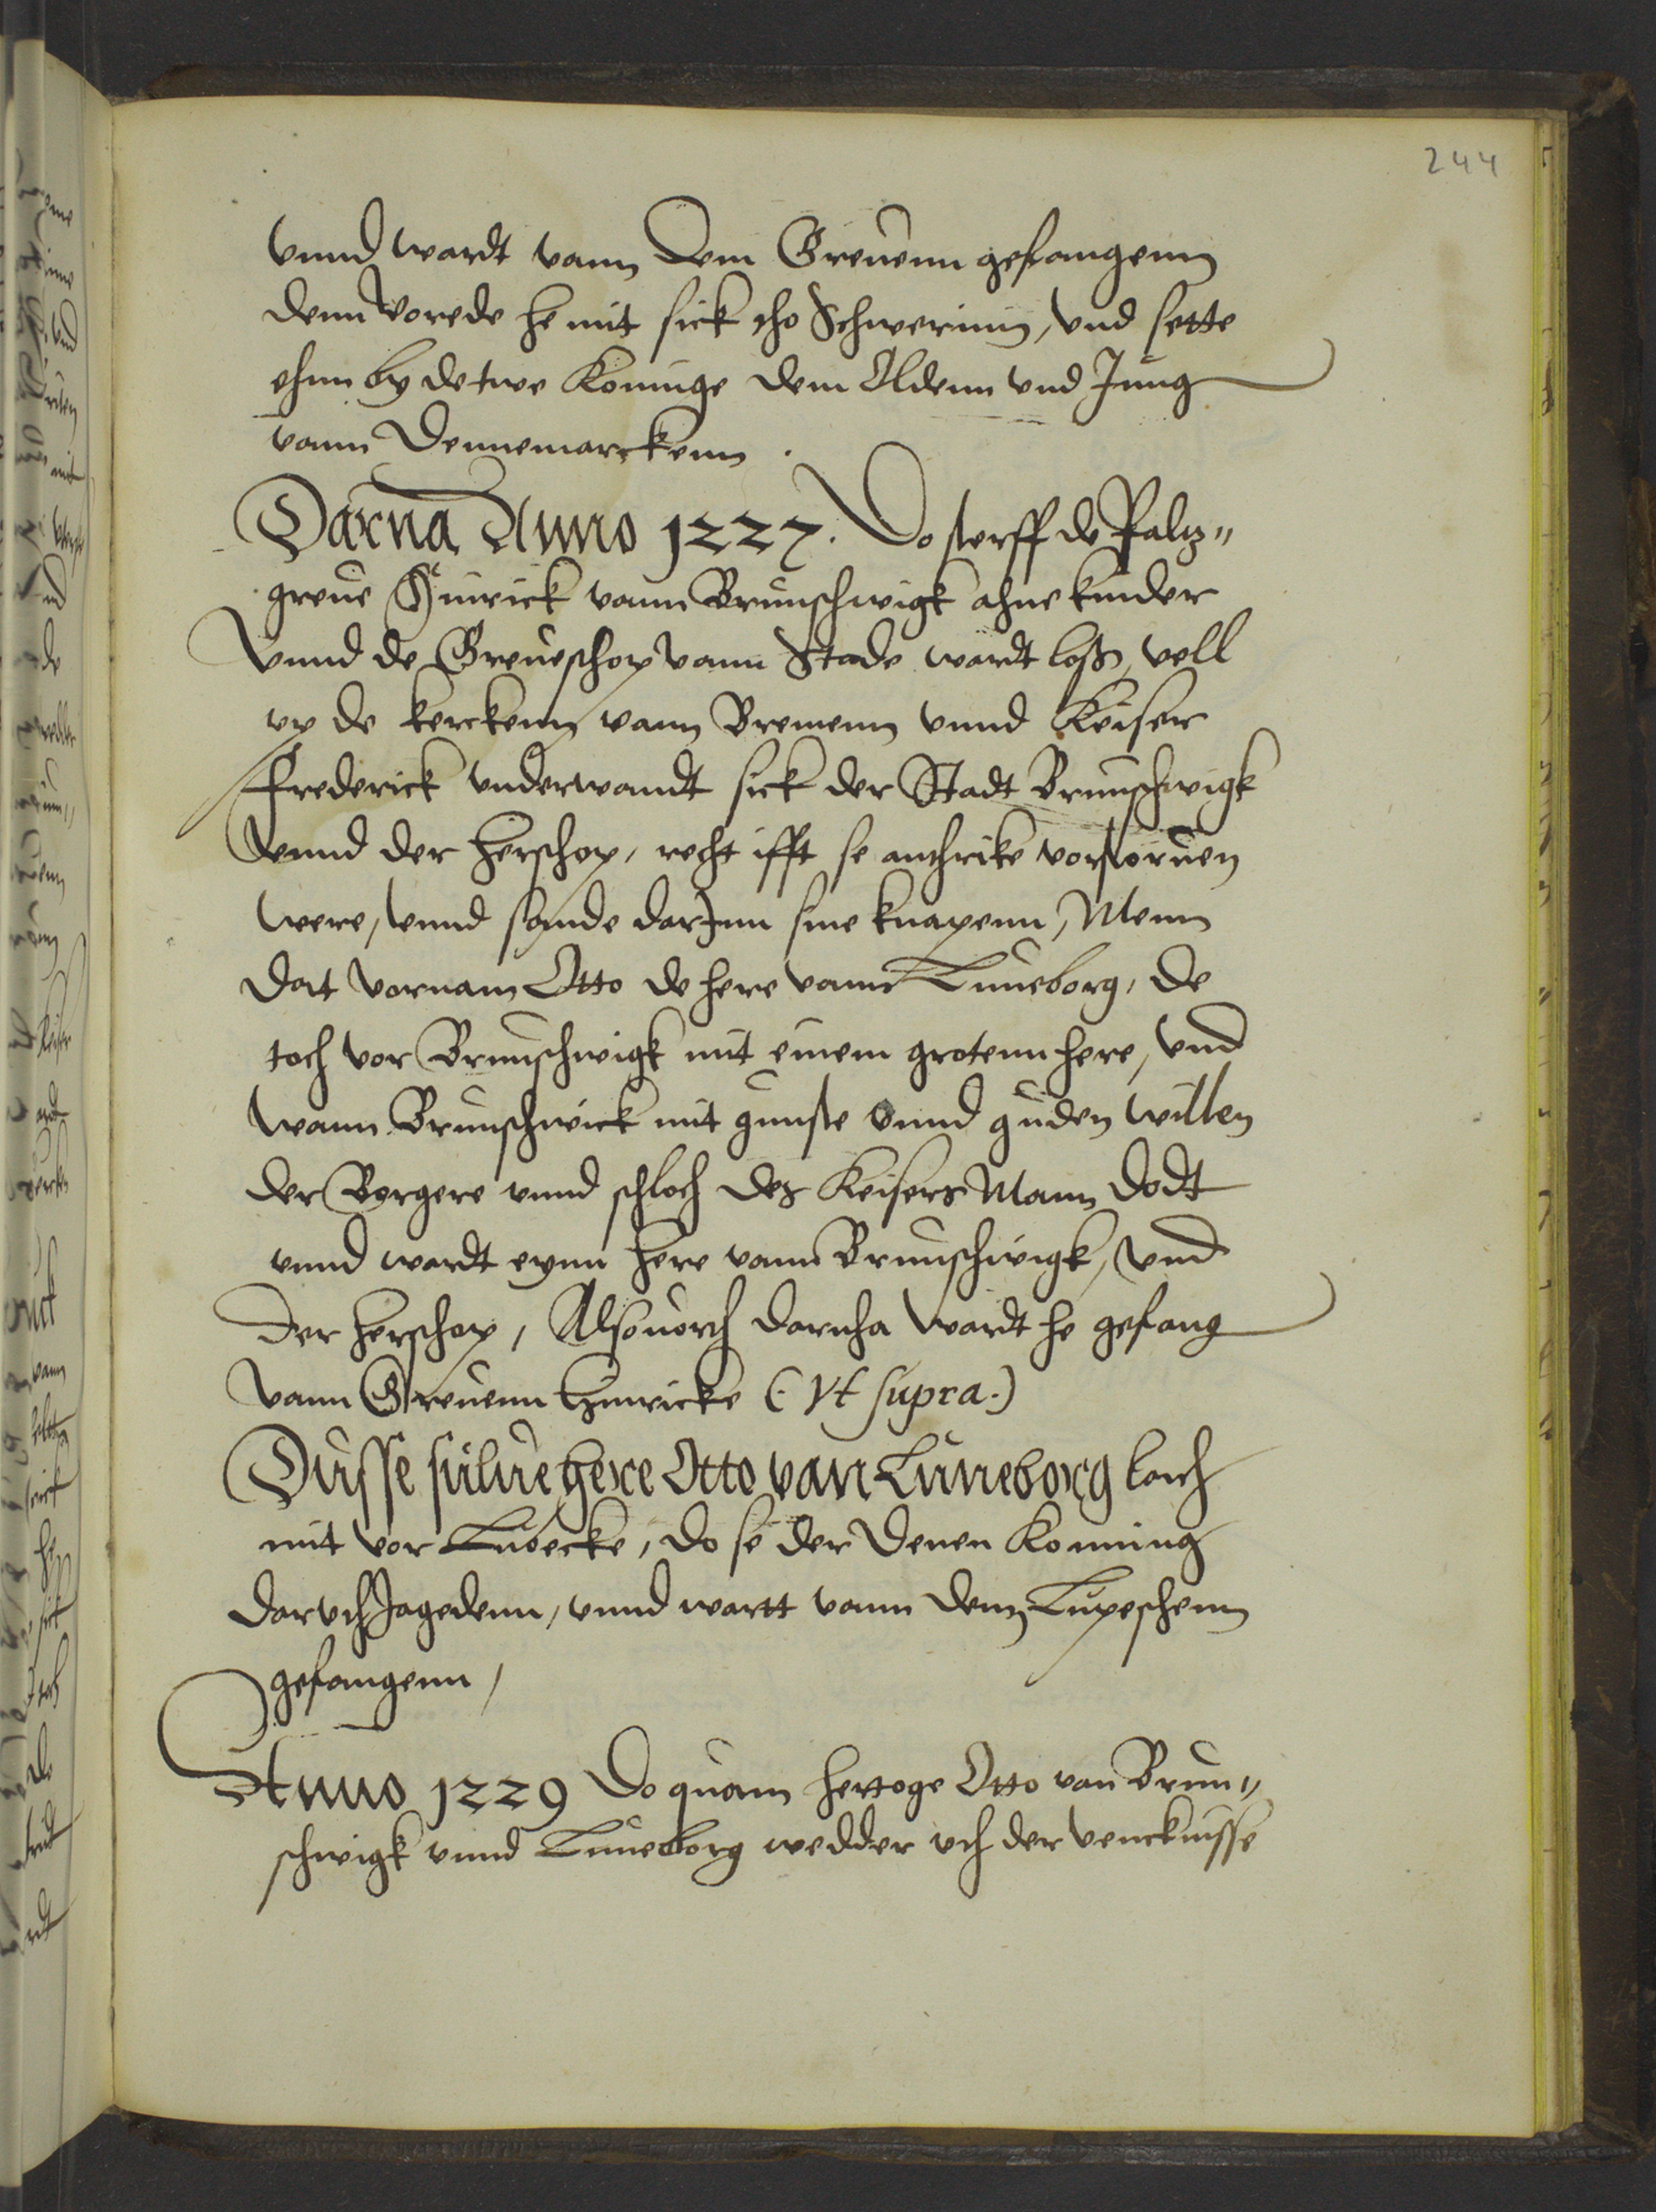 244
vnnd wardt vann dem Greuenn gefangenn
denn vorede he mit sick tho Schwerinn, vnd sette
ehnn by de twe Koninge dem Oldenn vnd Jung
vann Dennemarckenn.
Darna Anno 1227. Do sterff de Paltz„
greue Hinrick vann Brunschwigk ahne kinder
Vnnd de Greueschop vann Stade wardt loß, vell
vp de kerckenn vann Bremenn vnnd Keiser
Frederick vnderwandt sick der Stadt Brunschwigk
vnnd der herschop, recht ifft se am rike vorstoruen
were, vnnd sande darJnn sine knapenn, Menn
dat vornam Otto de here vann Luneborg, de
toch vor Brunschwigk mit einem grotenn here, vnd
wann Brunschwick mit gunste vnnd guden willen
der Borgere vnnd schloch des Keisers Mann dodt
vnnd wardt eynn here vann Brunschwigk, vnd
der herschop, Alsonoch darnha wardt he gefang
vann Greuenn Hinricke (. Vt supra.)
Dusse sulue here Otto van Luneborg lach
mit vor Lubecke, do se der Denen Konning
daruth Jagedenn, vnnd wartt vann denn Lupeschenn
gefangenn,
Anno 1229 Do quam hertoge Otto van Brun„
schwigk vnnd Luneborg wedder vth der venckniſse